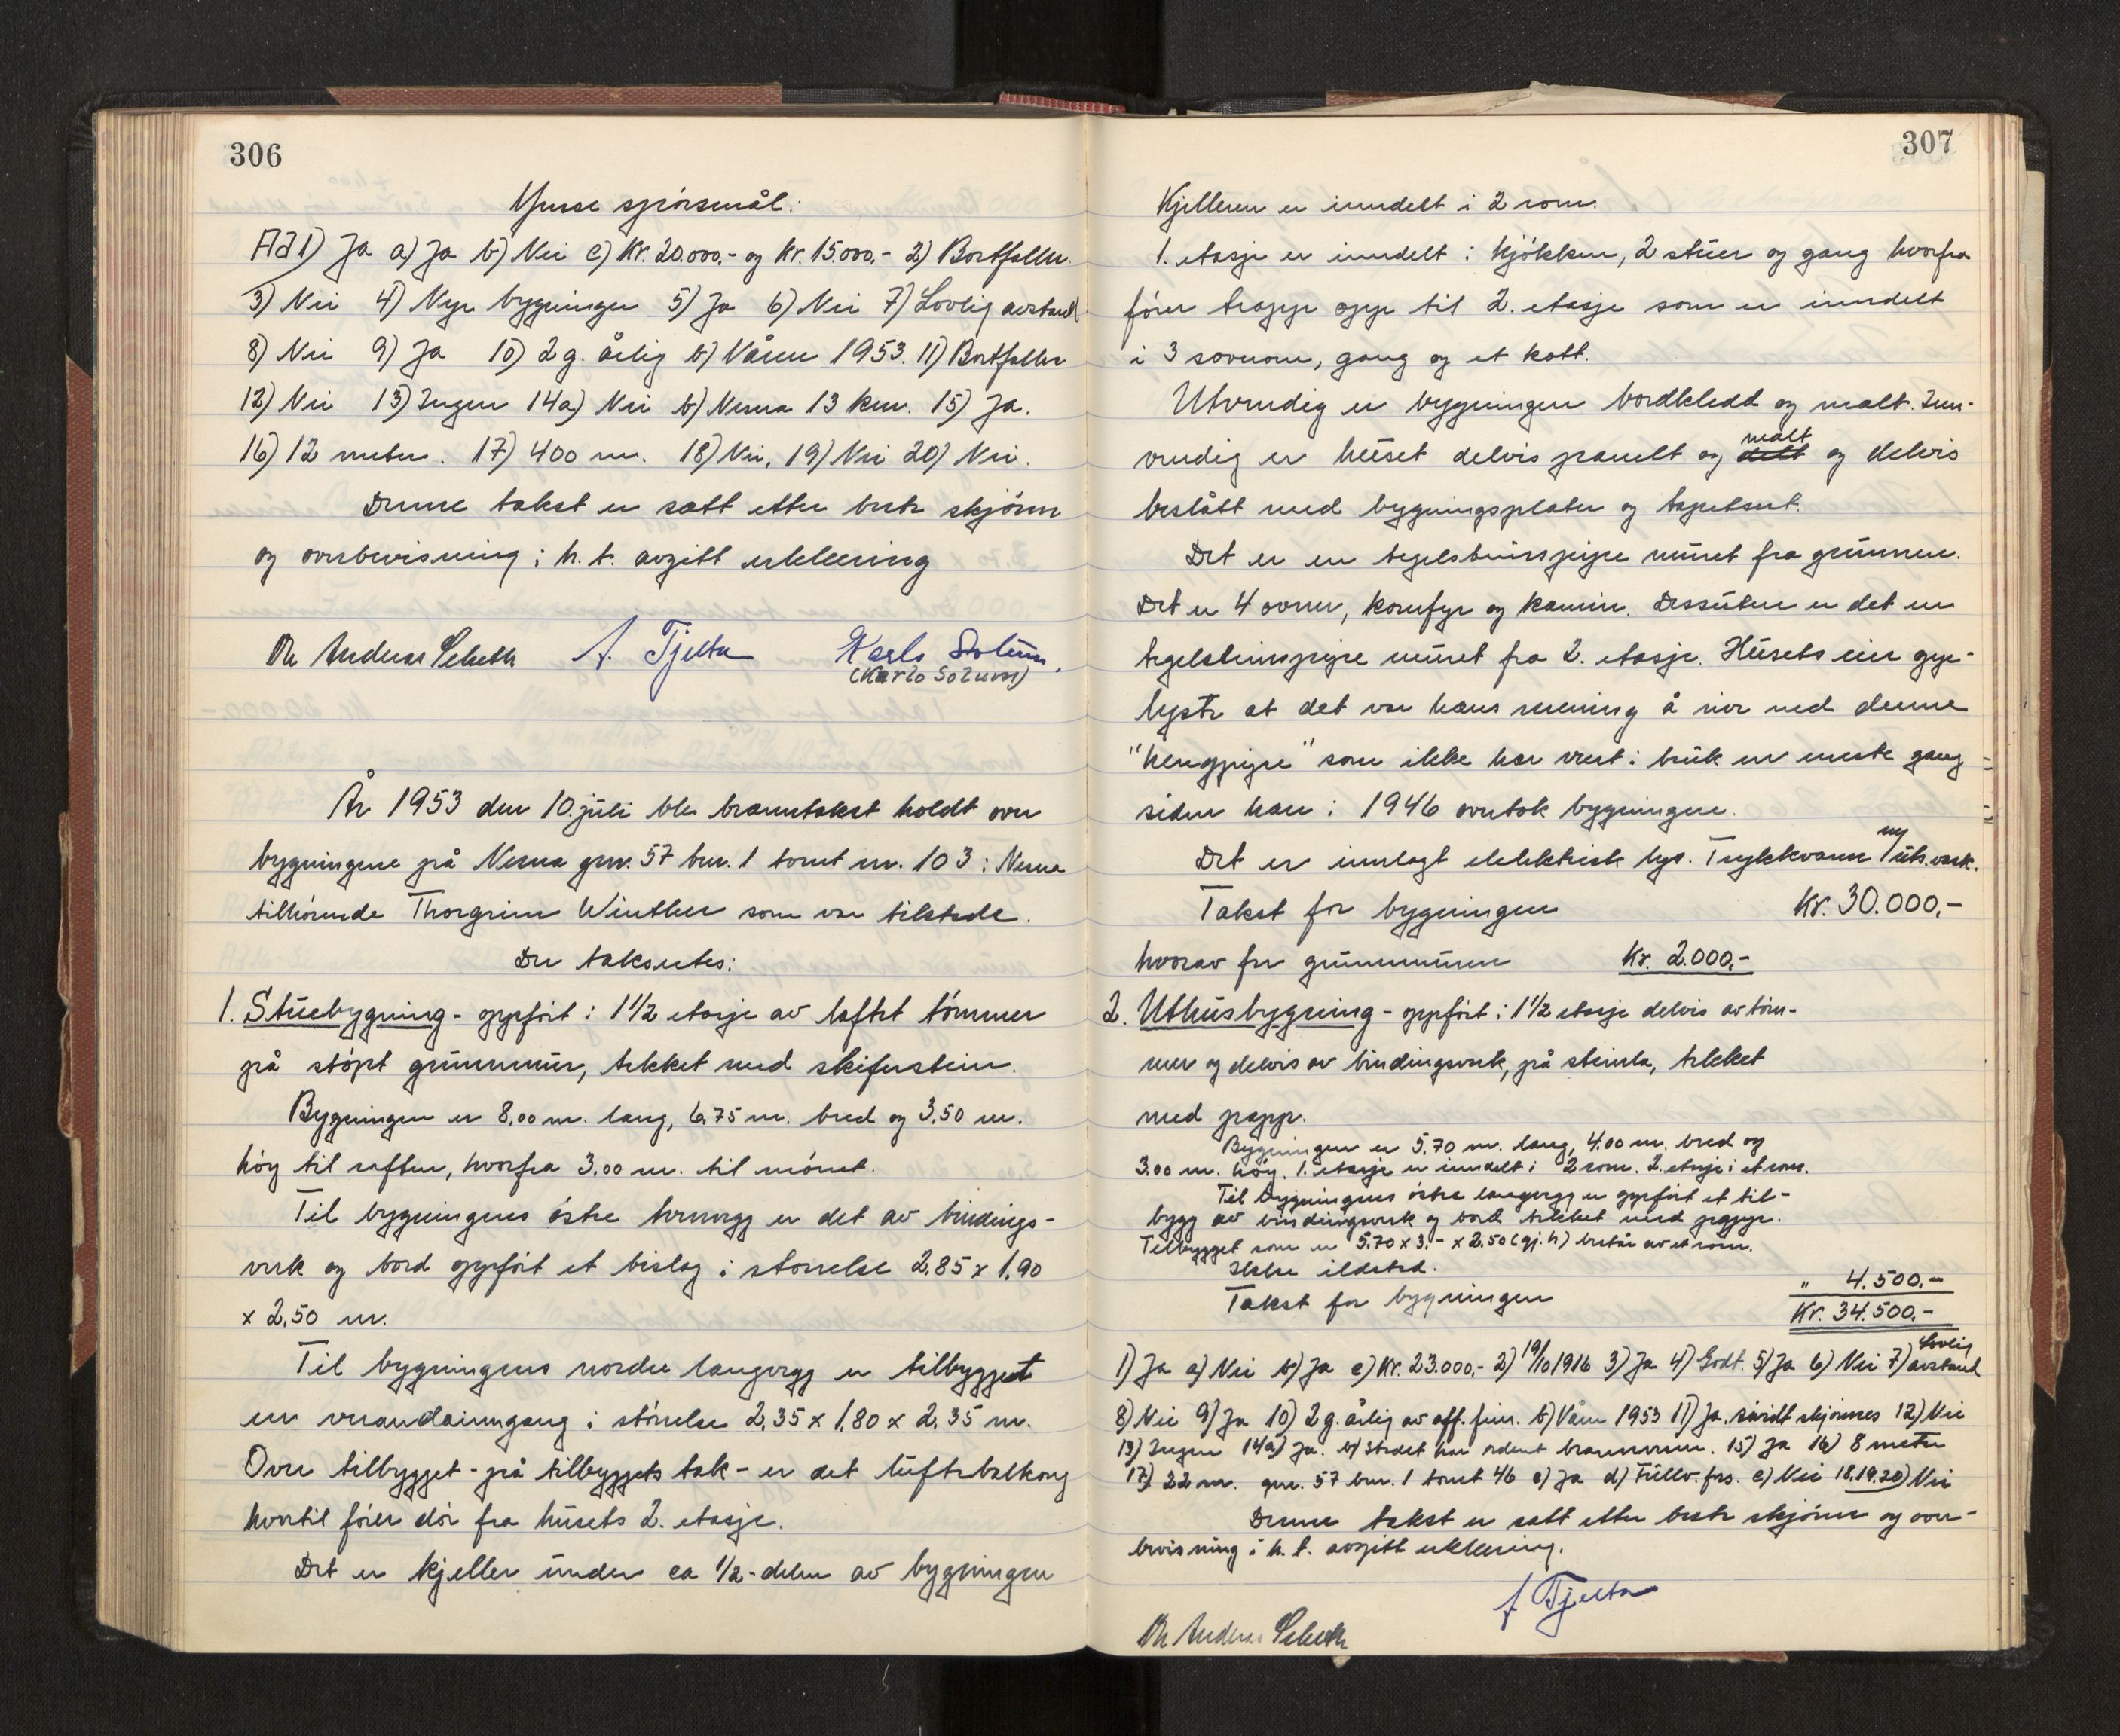 306
Ymse spörsmål:
Ad 1) Ja a) Ja b) Nei c) Kr. 20.000,- og Kr. 15.000,- 2) Bortfaller.
3) Nei 4) Nye bygninger 5) Ja 6) Nei 7) Lovlig avstand
8) Nei 9) Ja 10) 2 g. årlig b) Våren 1953. 11) Bortfaller
12) Nei 13) Ingen 14a) Nei b) Nesna 13 km. 15) Ja.
16) 12 meter. 17) 400 m. 18) Nei, 19) Nei 20) Nei.
Denne takst er satt etter beste skjönn
og overbevisning i h. t. avgitt erklæring
A. Tjelta Karlo Solum.
(Karlo Solum)
År 1953 den 10. juli ble branntakst holdt over
bygningene på Nesna gnr. 57 bnr. 1 tomt nr. 103 i Nesna
tilhörende Thorgrim Winther som var tilstede.
Der takseres:
1. Stuebygning - oppfört i 1 1/2 etasje av laftet tömmer
på stöpt grunnmur, tekket med skiferstein.
Bygningen er 8,00 m. lang, 6,75 m. bred og 3,50 m.
höy til raften, hvorfra 3,00 m. til mönet.
Til bygningens östre tverrvegg er det av bindings-
verk og bord oppfört et bislag i storrelse 2,85 x 1,90
x 2,50 m.
Til bygningens nordre langvegg er tilbygget
en verandainngang i störrelse 2,35 x 1,80 x 2,35 m.
Over tilbygget - på tilbyggets tak - er det luftebalkong
hvortil förer dör fra husets 2. etasje.
Det er kjeller under ca 1/2-delen av bygningen
307
Kjelleren er inndelt i 2 rom.
1. etasje er inndelt i kjökken, 2 stuer og gang hvorfra
förer trapp opp til 2. etasje som er inndelt
i 3 soverom, gang og et kott.
Utvendig er bygningen bordkledd og malt. Inn-
vendig er huset delvis panelt og malt og delvis
beslått med bygningsplater og tapetsert.
Det er en teglsteinspipe muret fra grunnen.
Det er 4 ovner, komfyr og kamin. Dessuten er det en
teglsteinspipe muret fra 2. etasje. Husets eier opp-
lyste at det var hans mening å rive ned denne
"hengpipe" som ikke har vært i bruk en eneste gang
siden han i 1946 overtok bygningen.
Det er innlagt elektrisk lys. Trykkvann og utv. vask.
Takst for bygningen Kr. 30.000,-
hvorav for grunnmuren Kr. 2.000,-
2. Uthusbygning - oppfört i 1 1/2 etasje delvis av töm-
mer og delvis av bindingsverk, på steinla, tekket
med papp.
Bygningen er 5,70 m. lang, 4,00 m. bred og
3,00 m. höy. 1. etasje er inndelt i 2 rom. 2. etasje i et rom.
Til bygningens östre langvegg er oppfört et til-
bygg av bindingsverk og bord tekket med papp.
Tilbygget som er 5,70 x 3,- x 2,50 (gj. h) består av et rom.
Ikke ildsted.
Takst for bygningen " 4.500,-
Kr. 34.500,-
1) Ja a) Nei b) Ja c) Kr. 23.000,- 2) 19/10 1916 3) Ja 4) Godt. 5) Ja 6) Nei 7) Lovlig avstand
8) Nei 9) Ja 10) 2 g. årlig av off. feier. b) Våren 1953 11) Ja, såvidt skjönnes 12) Nei
13) Ingen 14a) Ja. b) Stedet har ordent brannvesen. 15) Ja 16) 8 meter
17) 22 m. gnr. 57 bnr. 1 tomt 46 c) Ja d) Fullv. fors. e) Nei 18.19.20) Nei
Denne takst er satt etter beste skjönn og over-
bevisning i h. t. avgitt erklæring.
A Tjelta